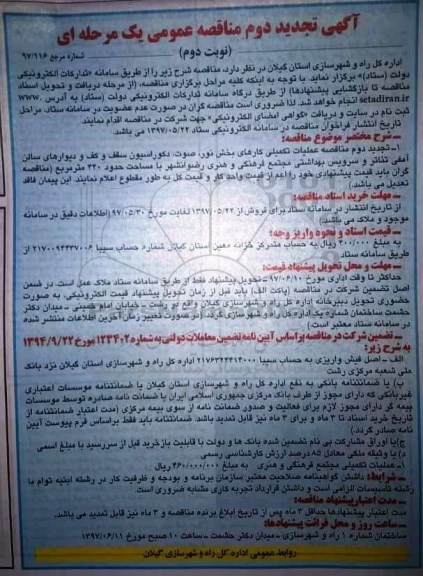 آگهی تجدید دوم مناقصه عمومی یک مرحله ای
(نوبت دوم)
شماره مرجع ۹۷/۱۱۶
اداره کل راه و شهرسازی استان گیلان در نظر دارد، مناقصه شرح زیر را از طریق سامانه «تدارکات الکترونیکی
دولت (ستاد)» برگزار نماید. با توجه به اینکه کلیه مراحل برگزاری مناقصه، (از مرحله دریافت و تحویل اسناد
مناقصه تا بازگشایی پیشنهادها) از طریق درگاه سامانه تدارکات الکترونیکی دولت (ستاد) به آدرس www.
setadiran.ir انجام خواهد شد. لذا ضروری است مناقصه گران در صورت عدم عضویت در سامانه ستاد، مراحل
ثبت نام در سایت و دریافت «گواهی امضای الکترونیکی» جهت شرکت در مناقصه اقدام نمایند.
تاریخ انتشار فراخوان مناقصه در سامانه الکترونیکی ستاد ۱۳۹۷/۰۵/۲۲ می باشد.
ـ شرح مختصر موضوع مناقصه:
۱ـ تجدید دوم مناقصه عملیات تکمیلی کارهای بخش نور، صوت، دکوراسیون سقف و کف و دیوارهای سالن
آمفی تئاتر و سرویس بهداشتی مجتمع فرهنگی و هنری رضوانشهر با مساحت حدود ۴۲۰ مترمربع (مناقصه
گران باید قیمت پیشنهادی خود را اعم از قیمت واحد کار و قیمت کل به طور مقطوع اعلام نمایند. این پیمان فاقد
تعدیل می باشد).
ـ مهلت خرید اسناد مناقصه:
از تاریخ انتشار در سامانه ستاد برای فروش از ۱۳۹۷/۰۵/۲۲ لغایت مورخ ۹۷/۰۵/۳۰ (اطلاعات دقیق در سامانه
موجود و ملاک می باشد).
ـ قیمت اسناد و نحوه واریز وجه:
به مبلغ ۲۰۰/۰۰۰ ریال به حساب متمرکز خزانه معین استان گیلان شماره حساب سیبا ۲۱۷۰۰۹۴۳۳۷۰۰۶ از
طریق سامانه ستاد
ـ مهلت و محل تحویل پیشنهاد قیمت:
حداکثر تا وقت اداری مورخ ۹۷/۰۶/۱۰ ـ تحویل پیشنهاد فقط از طریق سامانه ستاد ملاک عمل است. در ضمن
اصل تضمین شرکت در مناقصه (پاکت الف) باید قبل از زمان تحویل پیشنهاد قیمت الکترونیکی، به صورت
حضوری تحویل دبیرخانه اداره کل راه و شهرسازی گیلان واقع در رشت ـ خیابان امام خمینی ـ میدان دکتر
حشمت ساختمان شماره یک اداره کل راه و شهرسازی گردد. (در صورت تغییر زمان آخرین اطلاعات منتشر شده
در سامانه ستاد معتبر است)
ـ تضمین شرکت در مناقصه بر اساس آیین نامه تضمین معاملات دولتی به شماره ۱۲۳۴۰۲ مورخ ۱۳۹۴/۹/۲۲
به شرح زیر:
الف ـ اصل فیش واریزی به حساب سیبا ۲۱۷۶۳۴۴۱۴۰۰۰ اداره کل راه و شهرسازی استان گیلان نزد بانک
ملی شعبه مرکزی رشت
ب) یا ضمانتنامه بانکی به نفع اداره کل راه و شهرسازی استان گیلان یا ضمانتنامه موسسات اعتباری
غیربانکی که دارای مجوز از طرف بانک مرکزی جمهوری اسلامی ایران یا ضمانت نامه صادره توسط موسسات
بیمه گر دارای مجوز لازم برای فعالیت و صدور ضمانت نامه از سوی بیمه مرکزی (مدت اعتبار ضمانتنامه از
تاریخ خرید اسناد تا ۳ ماه و برای ۳ ماه نیز قابل تمدید باشد. ضمانتنامه باید فقط براساس فرم پیوست آیین
نامه صادر گردد.)
ج) یا اوراق مشارکت بی نام تضمین شده بانک ها و دولت با قابلیت بازخرید قبل از سررسید با مبلغ اسمی
د) یا وثیقه ملکی معادل ۸۵ درصد ارزش کارشناسی رسمی
۱ـ عملیات تکمیلی مجتمع فرهنگی و هنری به مبلغ ۴۶۰/۰۰۰/۰۰۰ ریال
ـ شرایط: داشتن گواهینامه صلاحیت معتبر سازمان برنامه و بودجه و ظرفیت کار در رشته ابنیه توام با
رشته تاسیسات الزامی است و داشتن قرارداد تجربه کاری مشابه ضروری است.
ـ مدت اعتبار پیشنهاد مناقصه:
مدت اعتبار پیشنهادها حداقل ۳ ماه پس از تاریخ ابلاغ برنده مناقصه و ۳ ماه نیز قابل تمدید می باشد.
ـ ساعت روز و محل قرائت پیشنهادها:
ساختمان شماره ۱ راه و شهرسازی ـ میدان دکتر حشمت ـ ساعت ۱۰ صبح مورخ ۱۳۹۷/۰۶/۱۱
روابط عمومی اداره کل راه و شهرسازی گیلان